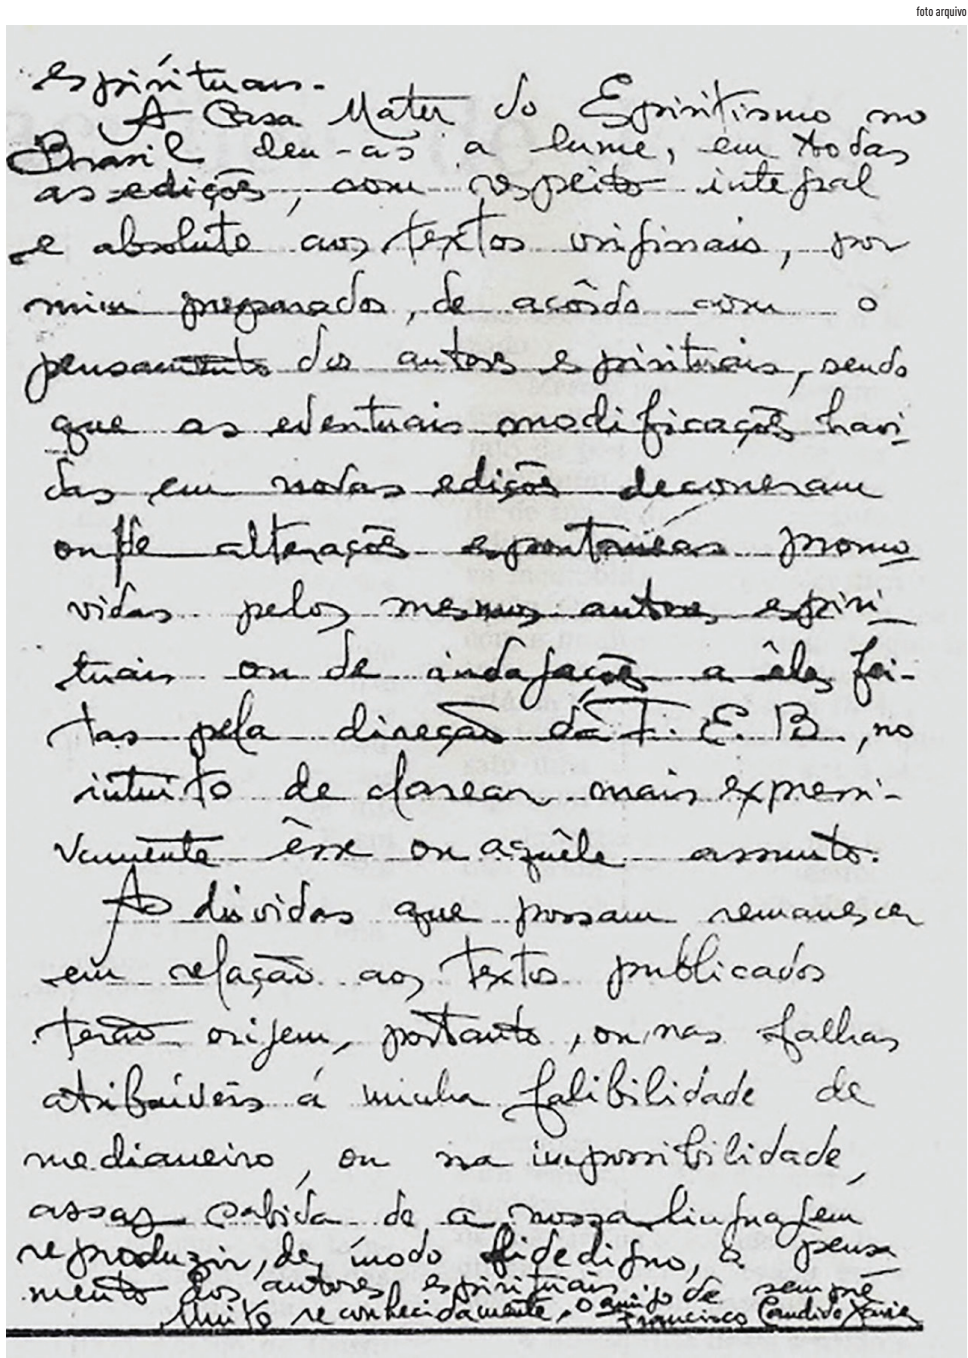 foto arquivo
espirituais.
A Casa Mater do Espiritismo no
Brasil deu-as a lume, em todas
as edições, com respeito integral
e absoluto aos textos originais, por
mim preparados, de acôrdo com o
pensamento dos autores espirituais, sendo
que as eventuais modificações havi-
das em novas edições decorreram
ou de alterações espontâneas promo-
vidas pelos mesmos autores espiri-
tuais ou de indagações a êles fei-
tas pela direção da F. E. B., no
intuito de clarear mais expressi-
vamente êsse ou aquêle assunto.
As dúvidas que possam remanescer
em relação aos textos publicados
terão origem, portanto, ou nas falhas
atribuíveis á minha falibilidade de
medianeiro, ou na impossibilidade,
assaz sabida de a nossa linguagem
reproduzir, de modo fidedigno, o pensa
mento dos autores espirituais.
Muito reconhecidamente, o amigo de sempre
Francisco Candido Xavier